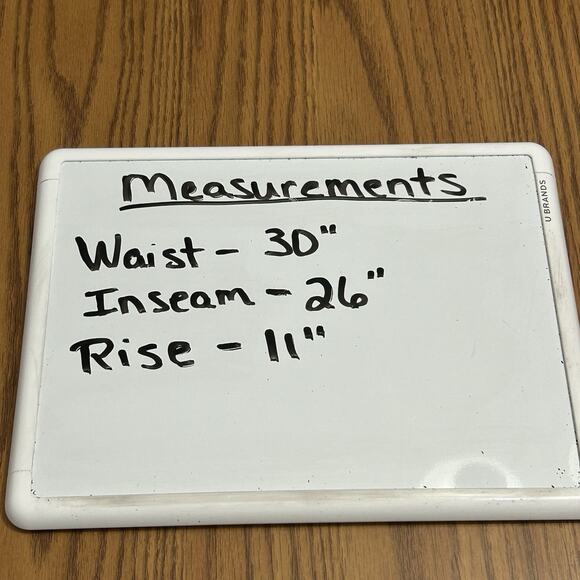 Measurements
Waist - 30"
Inseam - 26"
Rise - 11"
U BRANDS